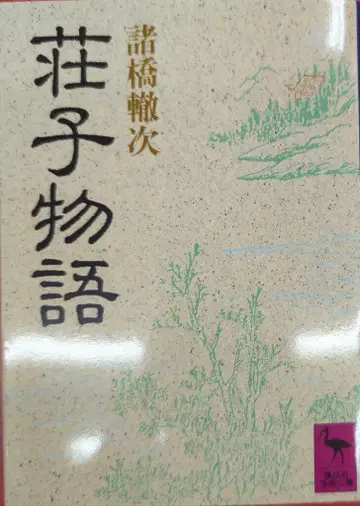 諸橋轍次
荘子物語
講談社
学術文庫